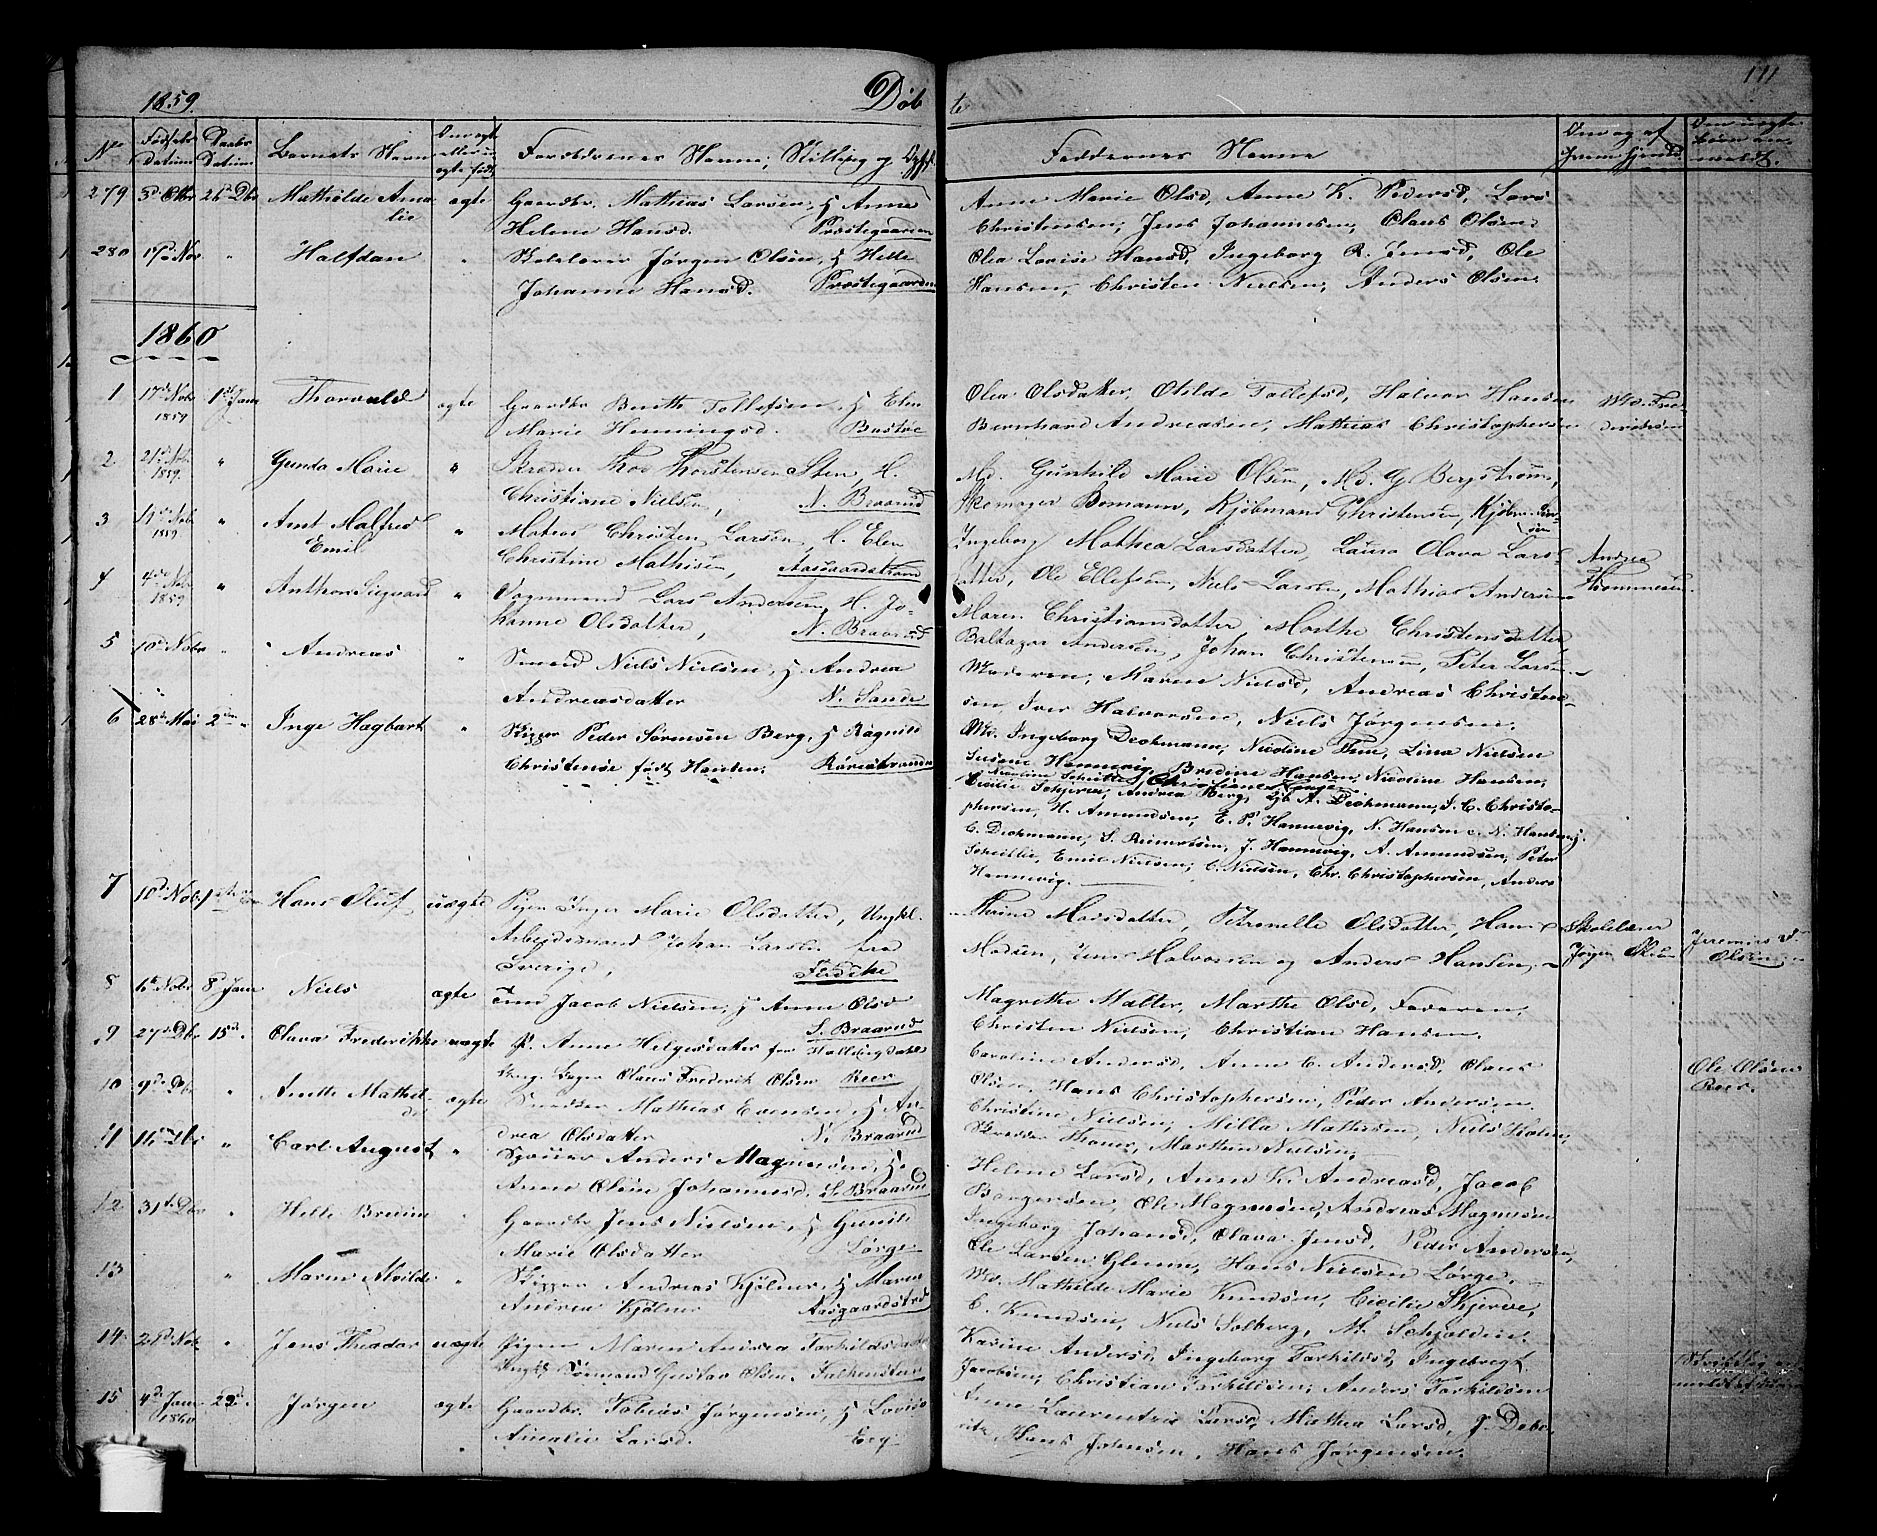 1859.
Døb
te
111
No
Fødsels datum
Daabs datum
Barnets Navn
Om ægte eller uægte født
Forældrenes Navne, Stilling og
Faddernes Navne
279 3d Oktbr 26d Dbr Mathilde Amalie ægte Gaardbr. Mathias Larsen, H Anne
Helene Hansd. Præstegaarden
Anne Marie Olsd, Anne K. Pedersd, Lars
Christensen, Jens Johannesen, Olaus Olsen
280 17d Novr " Halfdan " Skolelærer Jørgen Olsen, H Helle
Johanne Hansd. Præstegaarden
Olea Lovise Hansd, Ingeborg R. Jensd, Ole
Hansen, Christen Nielsen, Anders Olsen.
1860
1 17de Nobr 1859 1st Janr Thorvald ægte Gaardbr Benth Tollefsen, H Elen
Marie Henningsd. Bastøe
Olea Olsdatter, Otilde Tollefsd, Halvor Hansen
Bernhard Andreasen, Mathias Christophersen
2 21d Nobr 1859. " Gunda Marie " Skræder Thov Thorstensen Sten, H.
Christiane Nielsen, N. Braarud
Md. Gunhild Marie Olsen, Md. G Bergstrøm,
Skomager Bomann, Kjøbmand Christensen, Kjøbm.
3 19de Nobr 1859. " Amt Malfred Emil " Matros Christen Larsen, H. Elen
Christine Mathisen, Aasgaardstrand
Ingeborg Mathea Larsdatter, Laura Olava Lars-
datter, Ole Ellefsen, Niels Larsen, Mathias Andersen
Andrea Thommesen
4 4de Nobr 1859 " Anthon Sigvard " Vognmand Lars Andersen, H. Jo-
hanne Olsdatter, N. Braarud
Maren Christiansdatter, Marthe Christensdatter,
Baltazar Andersen, Johan Christensen, Peter Larsen
5 10d Nobr " Andreas " Smed Niels Nielsen, H Andrea
Andreasdatter N. Sande
Moderen, Maren Nielsd, Andreas Christen-
sen, Iver Halvorsen, Niels Jørgensen.
6 28de Mai 2den " Inge Hagbart " Skipper Peder Sørensen Berg, H Ragnild
Christense født Hansen. Rørestranden
Md. Ingeborg Dechmann, Nicoline Fine, Lina Nielsen
Susane Hannevig, Bredine Hansen, Nicoline Hansen,
Cicilie Schjerve, Andrea Berg, A. Dechmann, S. C. Christo-
phersen, H. Amundsen, E. P. Hannevig, N. Hansen, N. Hansen,
C. Dechmann, S. Reinertsen, J. Hannevig, A. Amundsen, Peter
Scheitlie, Emil Nielsen, C. Nielsen, Chr. Christophersen, Anders
Hannevig.
7 10d Nobr 1ste Hans Oluf uægte Pigen Inger Marie Olsdatter, Ungkl.
Arbeidsmand Johan Larsen fra
Sverige,
Madsen, Halvorsen og Anders Hansen,
Skolelærer Jørgen Olsen
Olsen
8 16 Nobr 8 Janr Niels ægte Jacob Nielsen, H Anne Olsd
S. Braarud
Magrethe Malter, Marthe Olsd, Faderen,
Christen Nielsen, Christian Hansen.
9 27d Dbr 15d " Olava Frederikke uægte P. Anne Helgesdatter fra Hallingdahl
Ung. Olaus Frederik Olsen Reer
Caroline Andersd, Anne C. Andersd, Olaus
Olsen, Hans Christophersen, Peder Andersen.
Ole Olsen Reer.
10 9d Dbr " Anette Mathilde ægte Snedker Mathias Evensen, H An-
drea Olsdatter N. Braarud
Christine Nielsen, Milla Mathisen, Niels Holm,
Skrædder Thoner, Marthin Nielsen,
11 16 Dbr " Carl August " Anders Magnusen, H.
Anne Oline Johannesd. S. Braarud
Helene Larsd, Anne K. Andreasd, Jacob
Borgersen, Ole Magnusen, Andreas Magnusen
12 31te Dbr " Helle Bredine " Gaardbr Jens Nielsen, H Gunild
Marie Olsdatter Lørge
Ingeborg Johansd, Olava Jensd, Peder Andersen,
Ole Larsen Glenne, Hans Nielsen Lørge.
13 " Maren Alvilde " Skipper Andreas Kjølner, H Maren
Andrea Kjølner Aasgaardstrd
Md. Mathilde Marie Knudsen, Cicilie Skjerve,
C. Knudsen, Niels Solberg, M. Scholdin.
14 2d Nob. " Jens Theodor uægte Pigen Maren Andrea Torkildsdatter
Ungk. Sømand Gustav Olsen. Falkensten
Karine Andersd, Ingeborg Torkildsd, Ingebregt
Jacobsen, Christian Torkildsen, Anders Torkildsen
15 4d Janr 1860 29d. Jørgen ægte Gaardbr. Tobias Jørgensen, H Lovise
Amalie Larsd. Eeg
Anne Laurentze Larsd, Mathea Larsd, J. Debe-
Hans Johnsen, Hans Jørgensen.